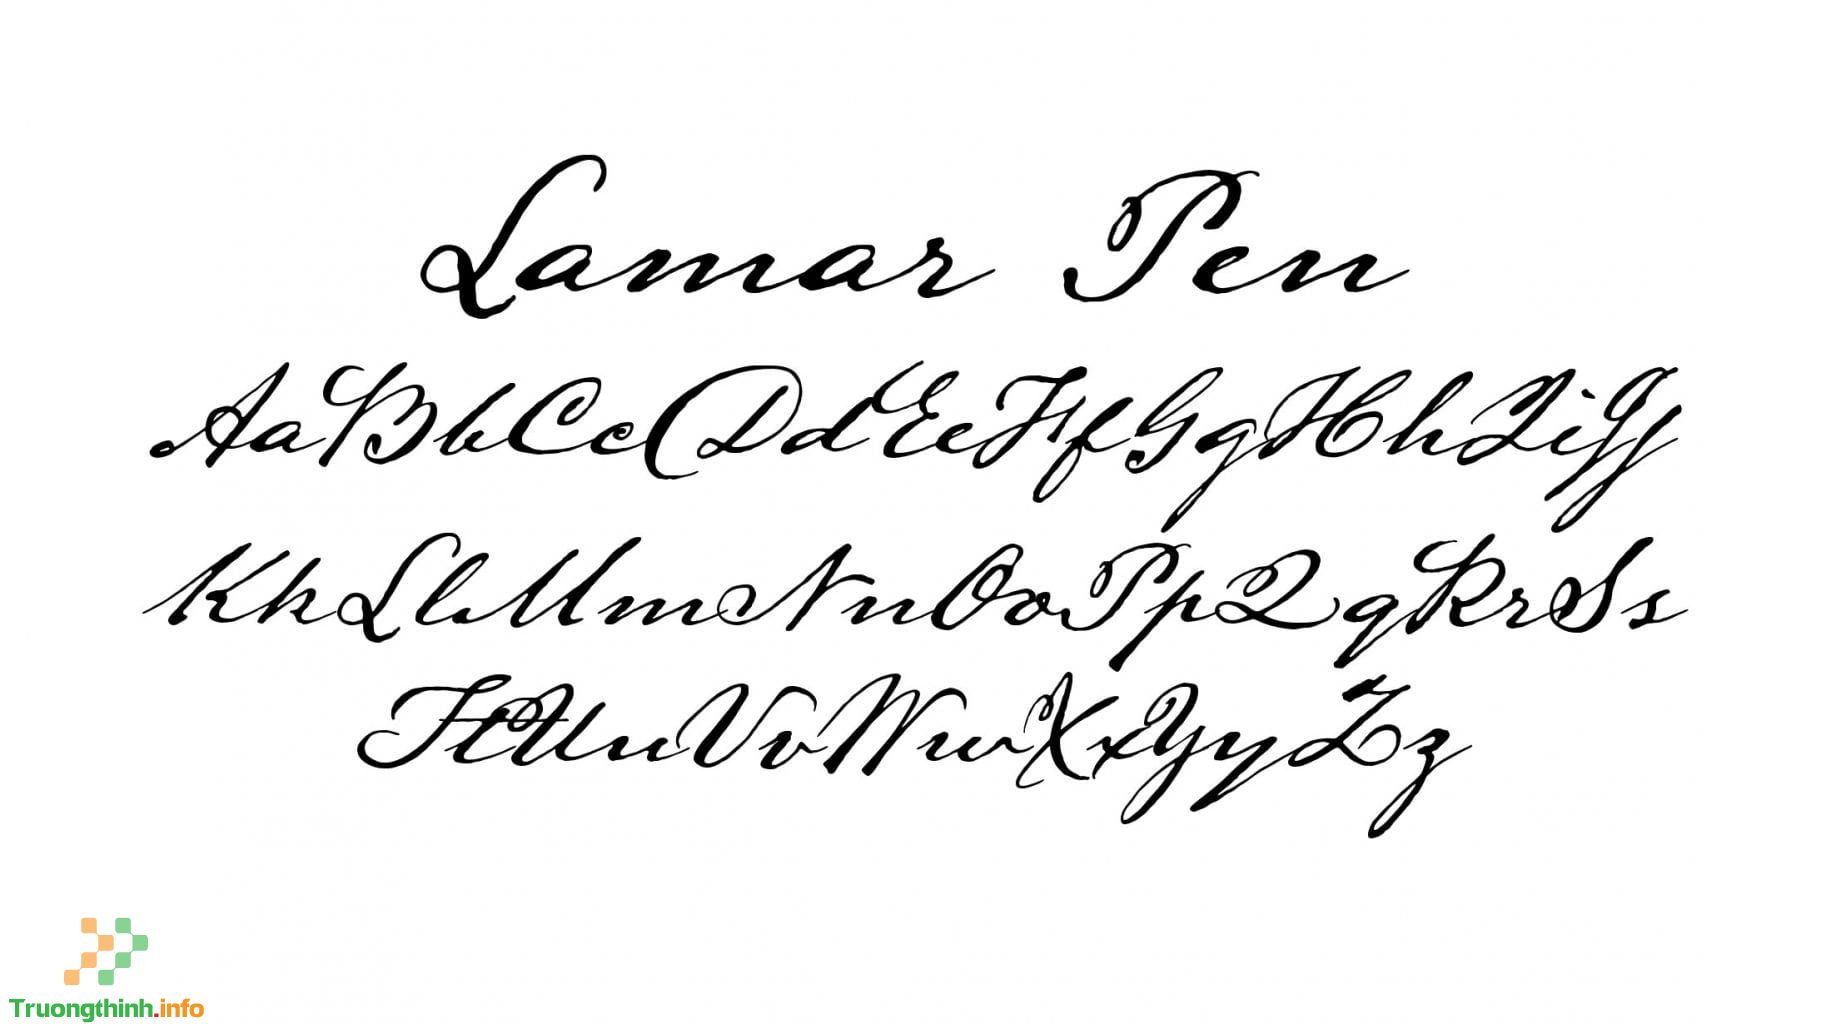 Lamar Pen
AaBbCcDdEeFfGgHhIiJj
KkLlMmNnOoPpQqRrSs
TtUuVvWwXxYyZz
Truongthinh.info